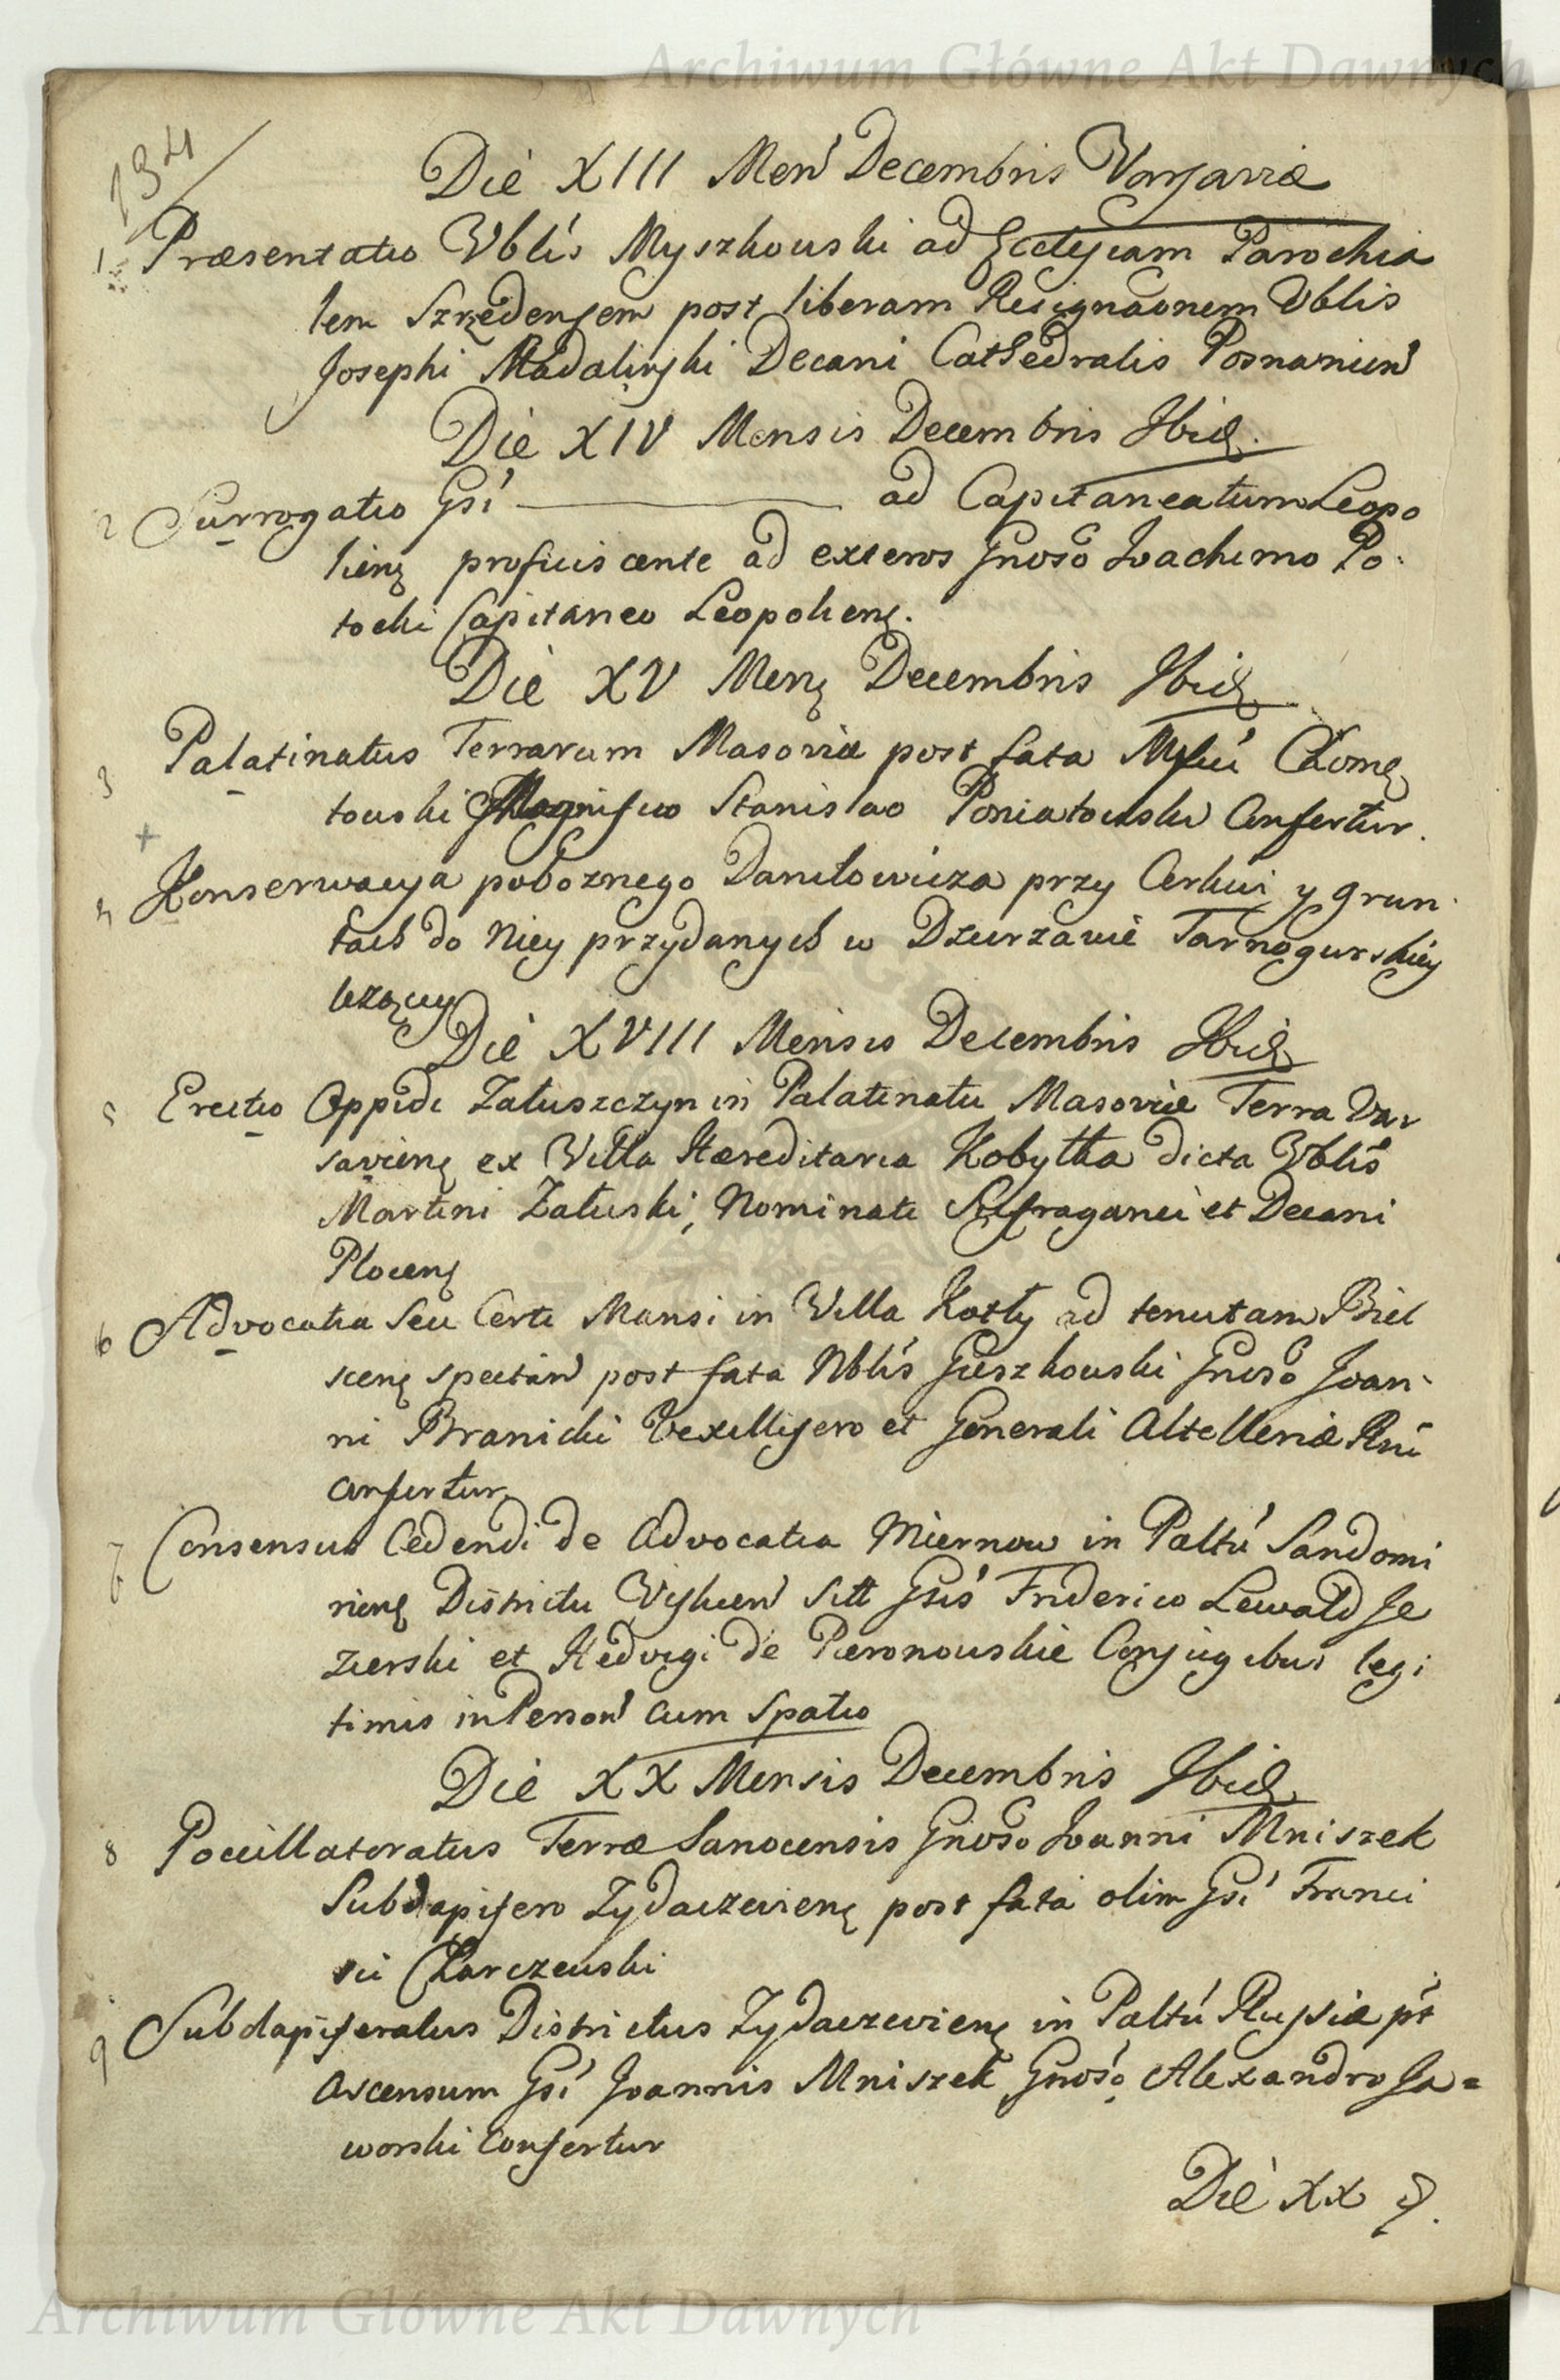 Archiwum Główne Akt Dawnych
134
Die XIII Men Decembris Varsaviæ
1 Præsentatio Vblis Myszkowski ad Ecclesiam Parochia
lem Szrzedensem post liberam Resignaonem Vblis
Josephi Madalinski Decani Cathedralis Posnanien
Die XIV Mensis Decembris Ibid.
2 Surrogatio Gsi ad Capitaneatum Leopo
lien proficiscente ad exteros Gnoso Joachimo Po
tocki Capitaneo Leopolien.
Die XV Men Decembris Ibid
3 Palatinatus Terrarum Masoviæ post fata Chome
towski Magnifico Stanislao Poniatowski Confertur.
4 Konserwacya poboznego Daniłowicza przy Cerkwi y grun
tach do niey przydanych w Dzurzawie Tarnogurskiey
lezącey
Die XVIII Mensis Decembris Ibid
5 Erectio Oppidi Załuszczyn in Palatinatu Masoviæ Terra Var
savien ex Villa Hæreditaria Kobyłka dicta Vblis
Martini Załuski, Nominati Suffraganei et Decani
Plocen
6 Advocatia seu Certi Mansi in Villa Kotły ad tenutam Biel
scen spectan post fata Nblis Guszkowski Gnoso Joan
ni Branicki Vexillifero et Generali Altelleriæ Rni
confertur
7 Consensus Cedendi de Advocatia Miernow in Paltu Sandomi
rien Districtu Vislicen sitt Gsis Friderico Lewald Je
zierski et Hedvigi de Pieronowskie Conjugibus legi
timis in Person cum spatio
Die XX Mensis Decembris Ibid
8 Pocillatoratus Terræ Sanocensis Gnoso Joanni Mniszek
Subdapifero Zydaczevien post fata olim Gsi Franci
sci Charczewski
9 Subdapiferatus Districtus Zydaczevien in Paltu Russiæ pt
ascensum Gsi Joannis Mniszek Gnoso Alexandro Ja=
worski Confertur
Die XX
Archiwum Główne Akt Dawnych